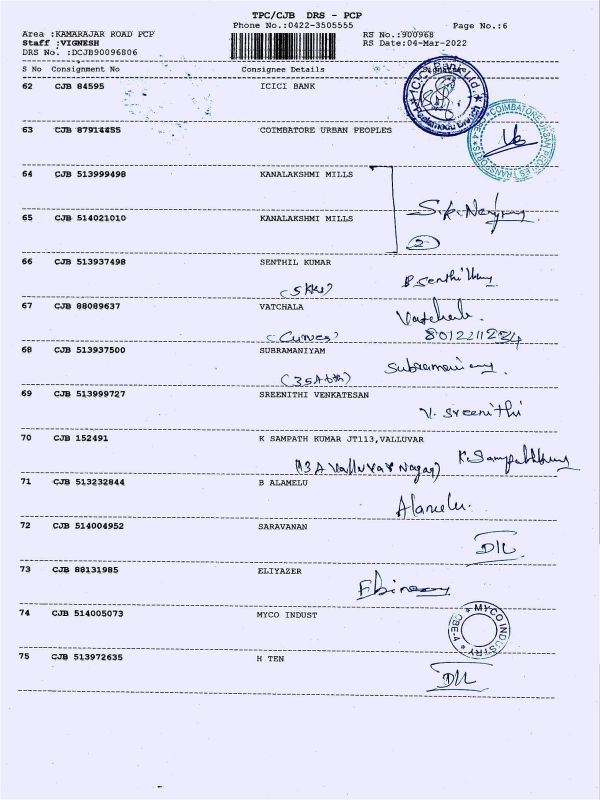 TPC/CJB DRS - PCP
Phone No.:0422-3505555
Page No.:6
Area :KAMARAJAR ROAD PCP
RS No.:900968
Staff :VIGNESH
RS Date:04-Mar-2022
DRS No. :DCJB90096806
S No Consignment No Consignee Details Signature
62 CJB 84595 ICICI BANK
ICICI Bank Ltd.
63 CJB 87914455 COIMBATORE URBAN PEOPLES
COIMBATORE URBAN PEOPLES
CBE-4
64 CJB 513999498 KANALAKSHMI MILLS
65 CJB 514021010 KANALAKSHMI MILLS
2
66 CJB 513937498 SENTHIL KUMAR
P. Senthil
67 CJB 88089637 VATCHALA
Vatchala
(Curves)
68 CJB 513937500 SUBRAMANIYAM
69 CJB 513999727 SREENITHI VENKATESAN
V. Sreenithi
70 CJB 152491 K SAMPATH KUMAR JT113,VALLUVAR
K. Sampathkumar
(13 A Valluvar Nagar)
71 CJB 513232844 B ALAMELU
Alamelu.
72 CJB 514004952 SARAVANAN
D/L
73 CJB 88131985 ELIYAZER
74 CJB 514005073 MYCO INDUST
MYCO INDUSTRY
CBE-4
75 CJB 513972635 H TEN
D/L